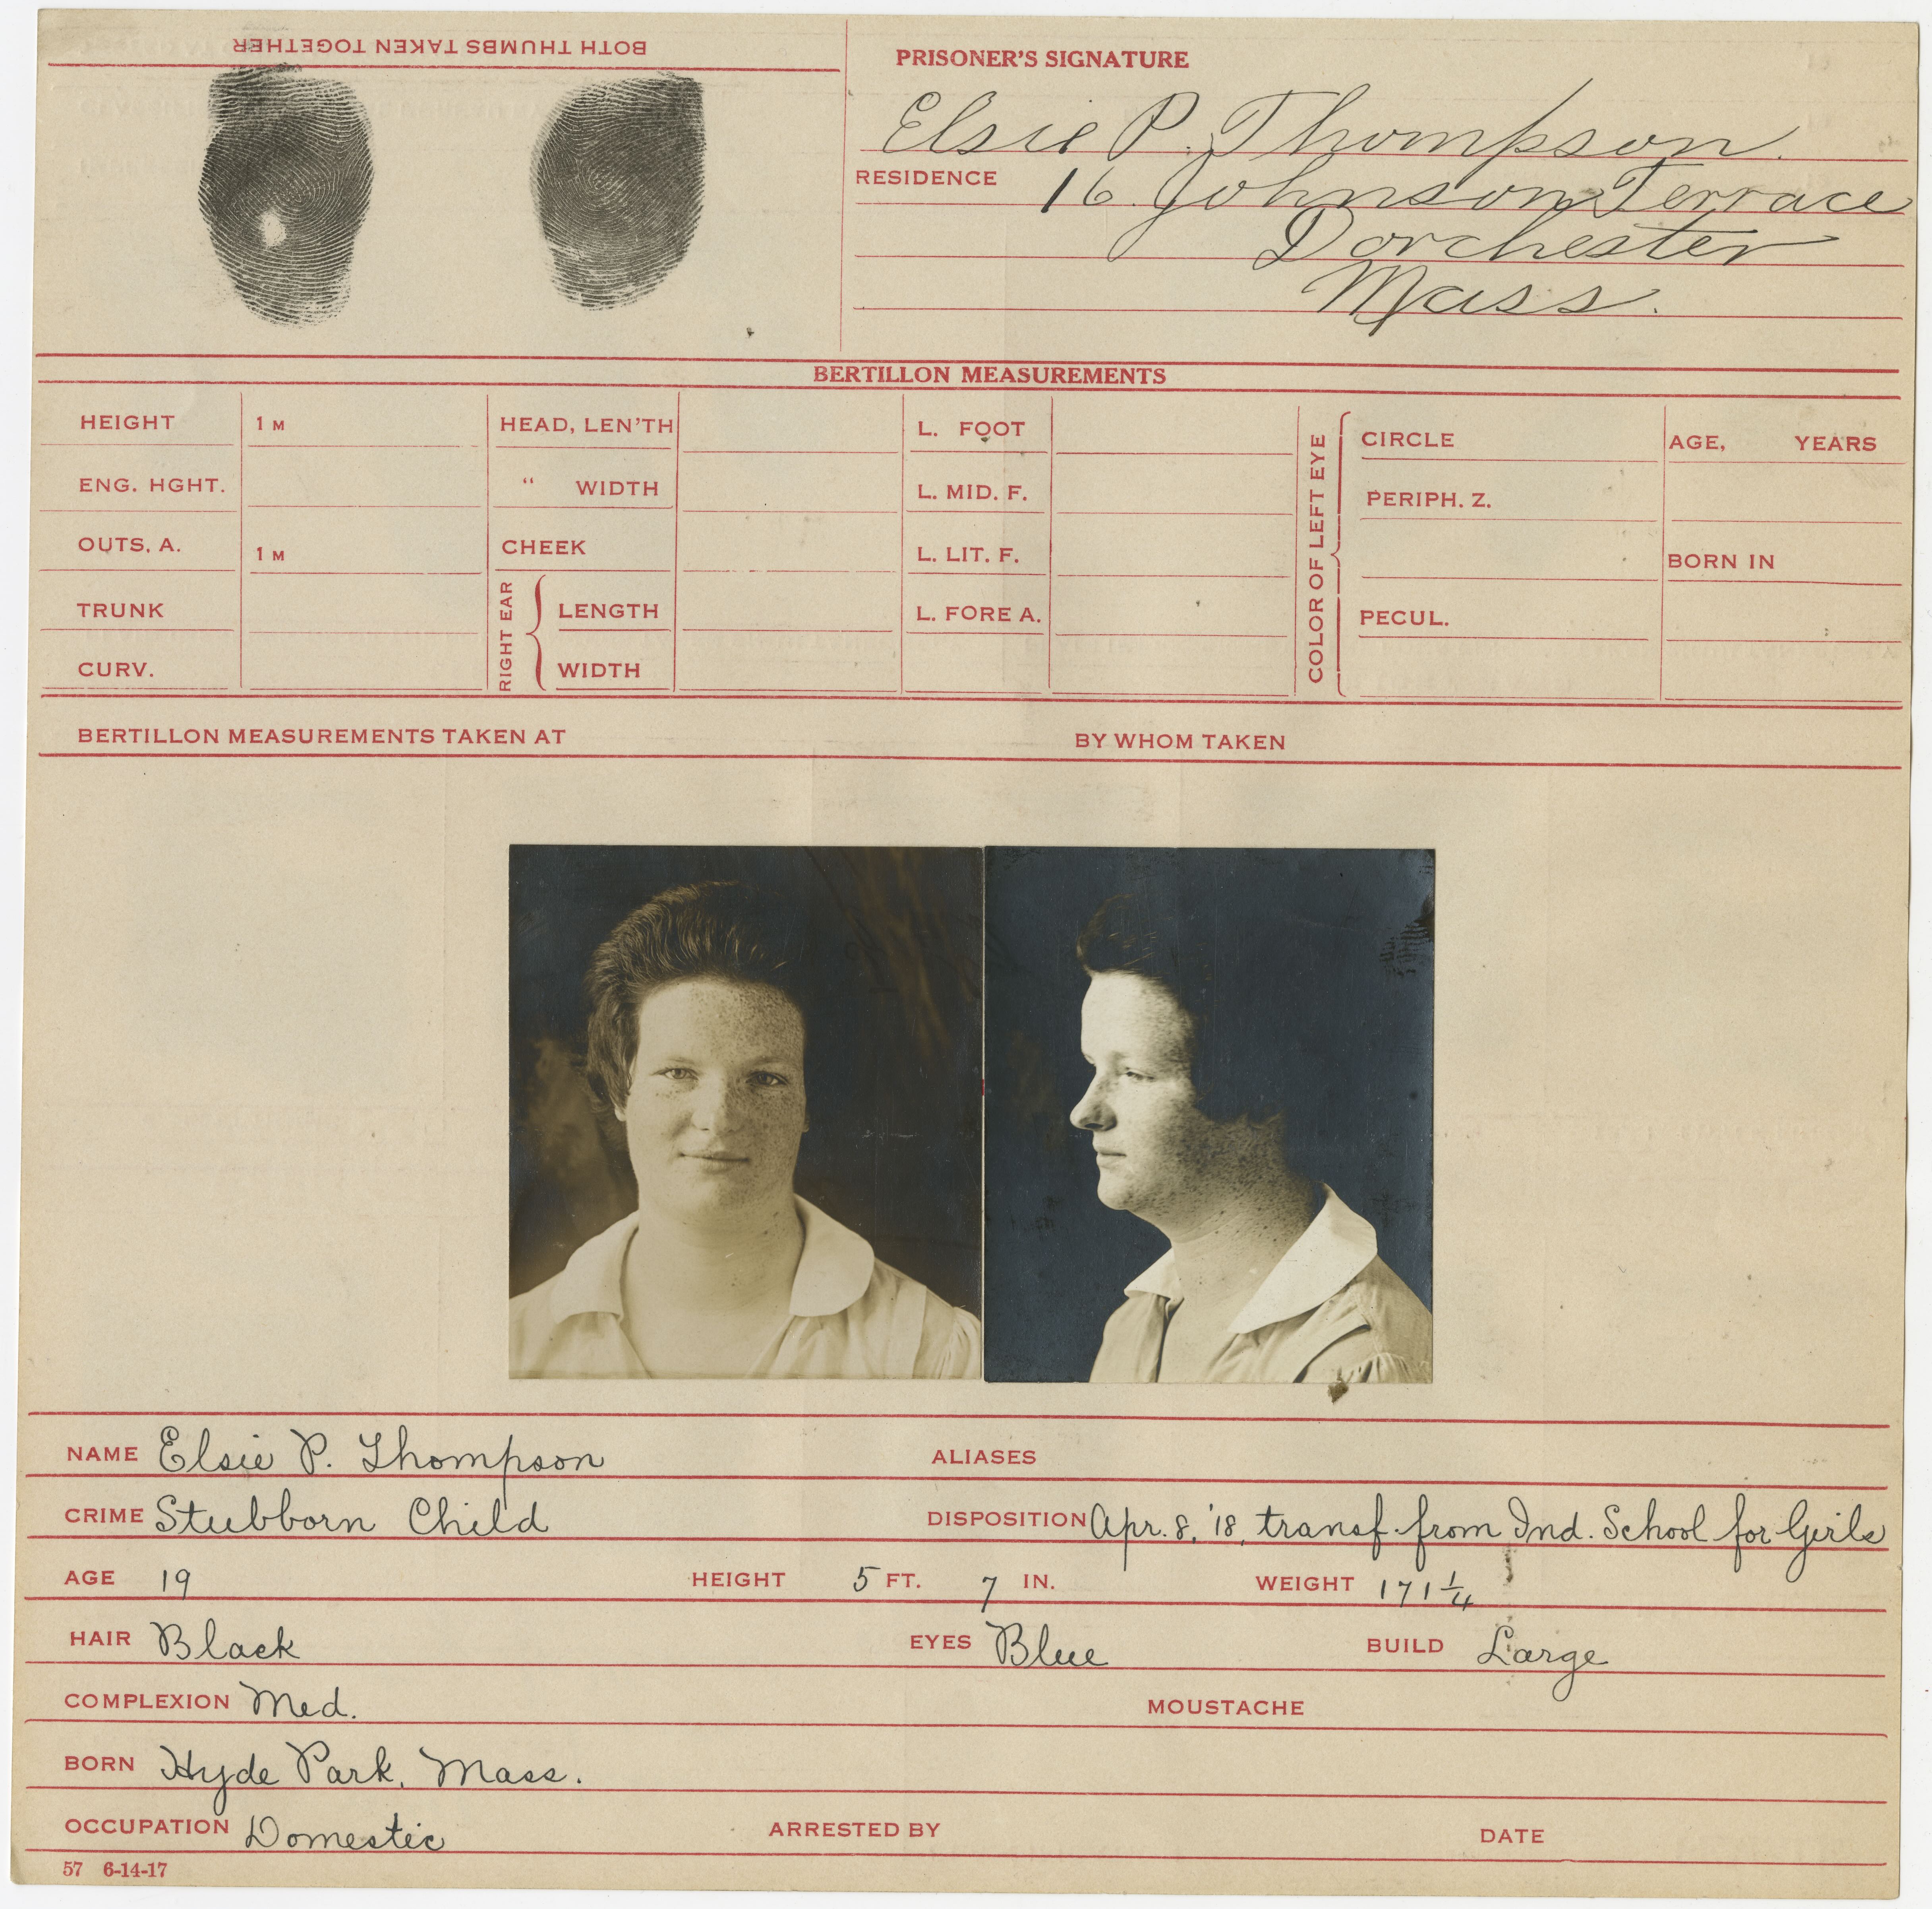 BOTH THUMBS TAKEN TOGETHER
PRISONER'S SIGNATURE
Elsie P. Thompson.
RESIDENCE 16. Johnson Terrace
Dorchester
Mass.
BERTILLON MEASUREMENTS
HEIGHT 1 M HEAD, LEN'TH L. FOOT CIRCLE AGE, YEARS
ENG. HGHT. " WIDTH L. MID. F. PERIPH. Z.
OUTS. A. 1 M CHEEK L. LIT. F. BORN IN
TRUNK LENGTH L. FORE A. PECUL.
CURV. WIDTH
RIGHT EAR
COLOR OF LEFT EYE
BERTILLON MEASUREMENTS TAKEN AT BY WHOM TAKEN
NAME Elsie P. Thompson ALIASES
CRIME Stubborn Child DISPOSITION Apr. 8, '18, transf. from Ind. School for Girls
AGE 19 HEIGHT 5 FT. 7 IN. WEIGHT 171 1/4
HAIR Black EYES Blue BUILD Large
COMPLEXION Med. MOUSTACHE
BORN Hyde Park, Mass.
OCCUPATION Domestic ARRESTED BY DATE
57 6-14-17